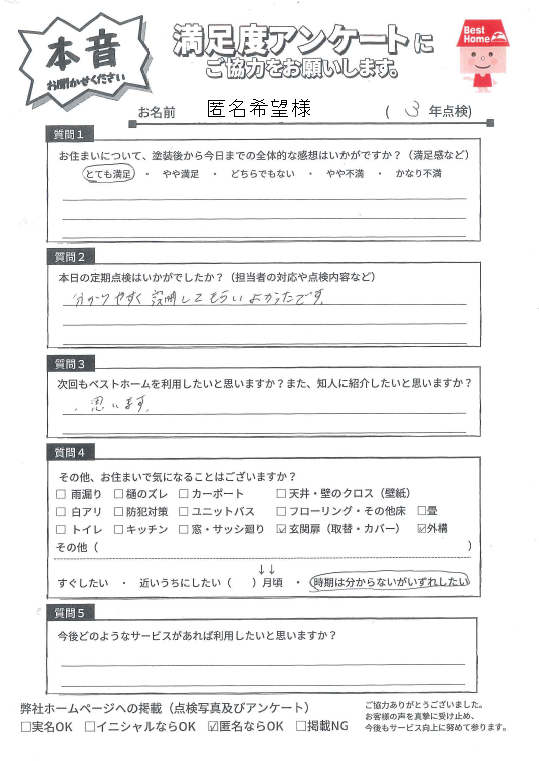 本音
お聞かせください
満足度アンケートに
ご協力をお願いします。
Best
Home
お名前 匿名希望様 ( 3 年点検)
質問1
お住まいについて、塗装後から今日までの全体的な感想はいかがですか?(満足感など)
とても満足 ・ やや満足 ・ どちらでもない ・ やや不満 ・ かなり不満
質問2
本日の定期点検はいかがでしたか?(担当者の対応や点検内容など)
分かりやすく説明してもらいよかったです。
質問3
次回もベストホームを利用したいと思いますか?また、知人に紹介したいと思いますか?
思います。
質問4
その他、お住まいで気になることはございますか?
☐ 雨漏り ☐ 樋のズレ ☐ カーポート ☐ 天井・壁のクロス(壁紙)
☐ 白アリ ☐ 防犯対策 ☐ ユニットバス ☐ フローリング・その他床 ☐ 畳
☐ トイレ ☐ キッチン ☐ 窓・サッシ廻り ☑ 玄関扉(取替・カバー) ☑ 外構
その他( )
↓↓
すぐしたい ・ 近いうちにしたい( )月頃 ・ 時期は分からないがいずれしたい
質問5
今後どのようなサービスがあれば利用したいと思いますか?
弊社ホームページへの掲載(点検写真及びアンケート)
☐実名OK ☐イニシャルならOK ☑匿名ならOK ☐掲載NG
ご協力ありがとうございました。
お客様の声を真摯に受け止め、
今後もサービス向上に努めて参ります。